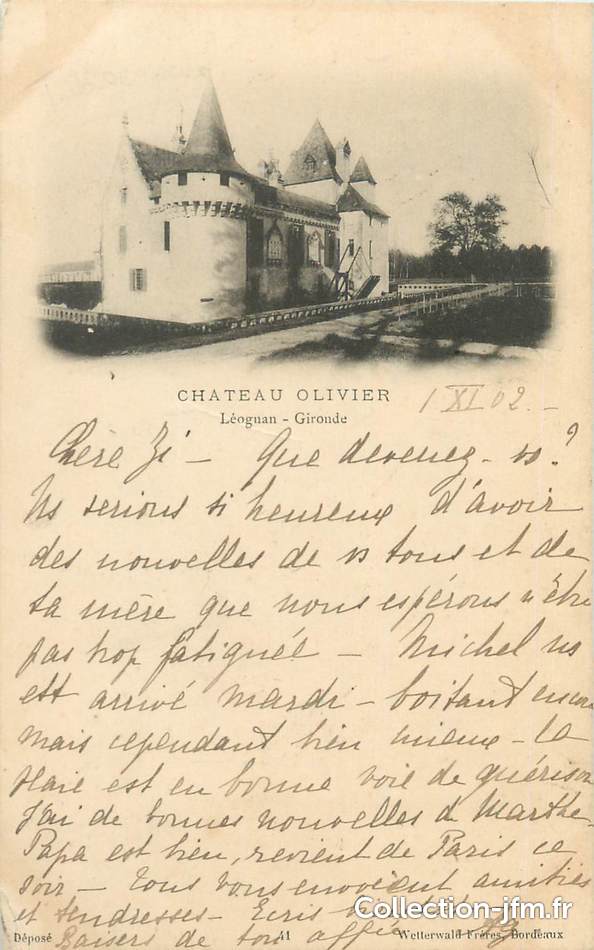 CHATEAU OLIVIER
Léognan - Gironde
1 XI 02 -
Chère Zi - Que devenez-vs?
Ns serions si heureux d'avoir
des nouvelles de vs tous et de
ta mère que nous espérons n'être
pas trop fatiguée - Michel ns
est arrivé mardi - boitant encore
mais cependant bien mieux - la
plaie est en bonne voie de guérison
J'ai de bonnes nouvelles d Marthe.
Papa est bien, revient de Paris ce
soir - Tous vous envoient amitiés
et tendresses - Ecris
Baisers de ton
Déposé 41 Wetterwald Frères, Bordeaux
Collection-jfm.fr